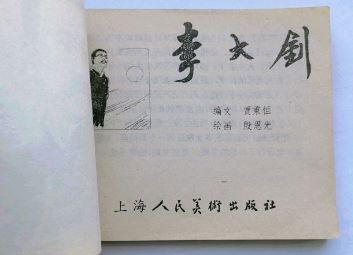 李大钊
编文 贾秉恒
绘画 殷恩光
上海人民美術出版社